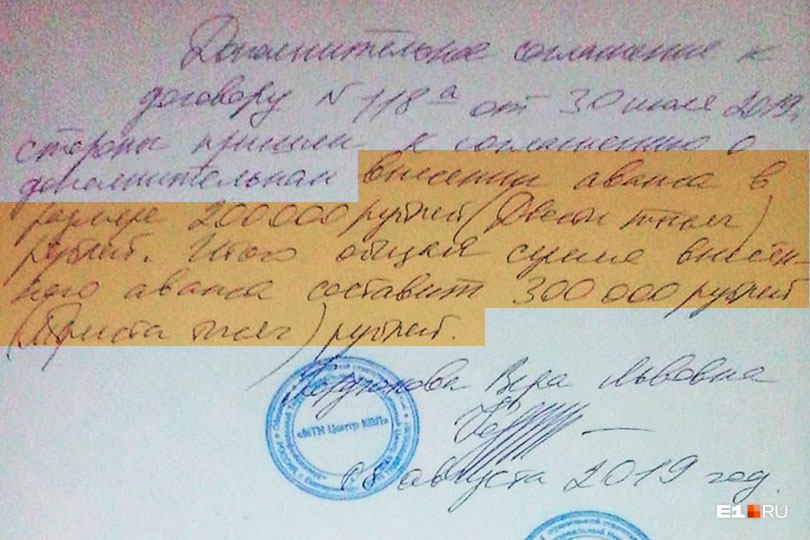 Дополнительное соглашение к
договору N 118а от 30 июля 2019г
стороны пришли к соглашению о
дополнительном внесении аванса в
размере 200000 рублей (Двести тысяч)
рублей. Итого общая сумма внесён-
ного аванса составит 300 000 рублей
(Триста тысяч) рублей.
Вера Львовна
«МТН Центр КВП»
08 августа 2019 год.
E1.RU